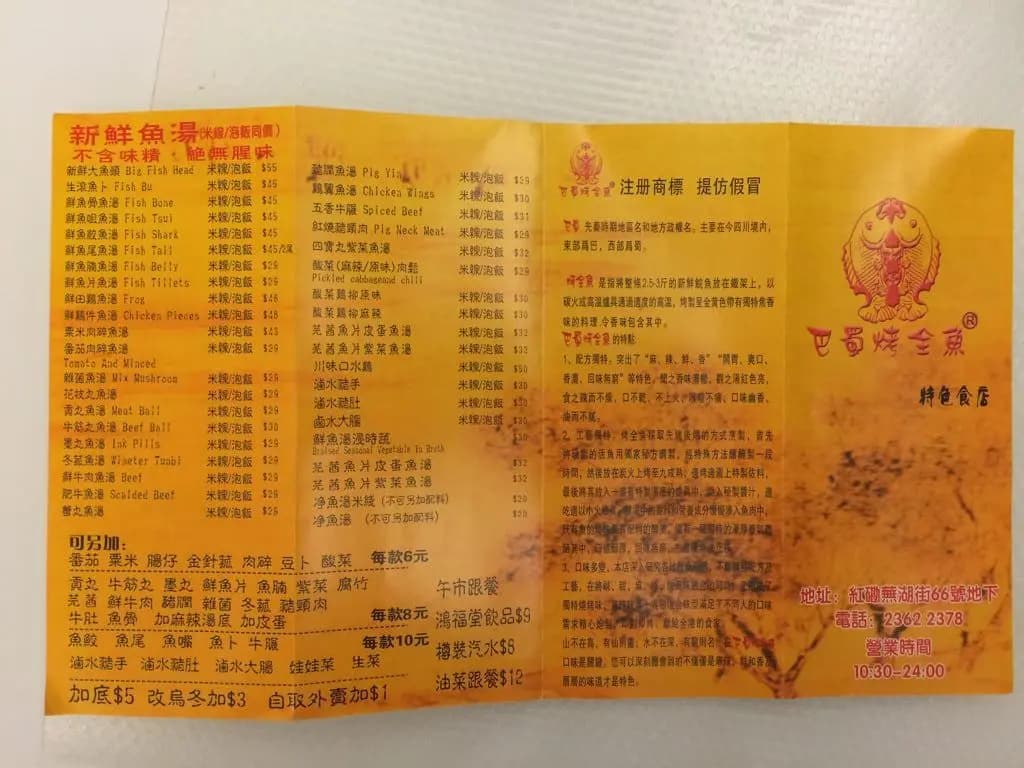 新鮮魚湯(米線/泡飯同價)
不含味精，絕無腥味
新鮮大魚頭 Big Fish Head 米線/泡飯 $55
生滾魚卜 Fish Bu 米線/泡飯 $45
鮮魚骨魚湯 Fish Bone 米線/泡飯 $45
鮮魚咀魚湯 Fish Tsui 米線/泡飯 $45
鮮魚鮫魚湯 Fish Shark 米線/泡飯 $45
鮮魚尾魚湯 Fish Tail 米線/泡飯 $45/2尾
鮮魚腩魚湯 Fish Belly 米線/泡飯 $29
鮮魚片魚湯 Fish Tillets 米線/泡飯 $29
鮮田鷄魚湯 Frog 米線/泡飯 $46
鮮鷄件魚湯 Chicken Pieces 米線/泡飯 $48
粟米肉碎魚湯 米線/泡飯 $43
番茄肉碎魚湯 米線/泡飯 $29
Tomato And Minced
雜菌魚湯 Mix Mushroom 米線/泡飯 $29
花枝丸魚湯 米線/泡飯 $29
貢丸魚湯 Meat Ball 米線/泡飯 $29
牛筋丸魚湯 Beef Ball 米線/泡飯 $30
墨丸魚湯 Ink Pills 米線/泡飯 $29
冬菰魚湯 Wineter Tunbi 米線/泡飯 $29
鮮牛肉魚湯 Beef 米線/泡飯 $29
肥牛魚湯 Scalded Beef 米線/泡飯 $29
蟹丸魚湯 米線/泡飯 $29
可另加：
番茄 粟米 腸仔 金針菰 肉碎 豆卜 酸菜 每款6元
貢丸 牛筋丸 墨丸 鮮魚片 魚腩 紫菜 腐竹
芫茜 鮮牛肉 豬膶 雜菌 冬菰 豬頸肉
牛肚 魚骨 加麻辣湯底 加皮蛋 每款8元
魚鮫 魚尾 魚嘴 魚卜 牛𦟌 每款10元
滷水豬手 滷水豬肚 滷水大腸 娃娃菜 生菜
加底$5 改烏冬加$3 自取外賣加$1
豬膶魚湯 Pig Yin 米線/泡飯 $29
鷄翼魚湯 Chicken Wings 米線/泡飯 $30
五香牛𦟌 Spiced Beef 米線/泡飯 $31
紅燒豬頸肉 Pig Neck Meat 米線/泡飯 $29
四寶丸紫菜魚湯 米線/泡飯 $32
酸菜(麻辣/原味)肉鬆 米線/泡飯 $29
Pickled cabbageand chili
酸菜鷄柳原味 米線/泡飯 $30
酸菜鷄柳麻辣 米線/泡飯 $30
芫茜魚片皮蛋魚湯 米線/泡飯 $32
芫茜魚片紫菜魚湯 米線/泡飯 $32
川味口水鷄 米線/泡飯 $50
滷水豬手 米線/泡飯 $30
滷水豬肚 米線/泡飯 $30
滷水大腸 米線/泡飯 $30
鮮魚湯浸時蔬 $30
Braised Seasonal Vegetable In Broth
芫茜魚片皮蛋魚湯 $32
芫茜魚片紫菜魚湯 $32
净魚湯米線 (不可另加配料) $20
净魚湯 (不可另加配料) $20
午市跟餐
鴻福堂飲品$9
樽裝汽水$8
油菜跟餐$12
巴蜀烤全魚® 注册商標 提仿假冒
巴蜀 先秦時期地區名和地方政權名。主要在今四川境內，
東部爲巴，西部爲蜀。
烤全魚 是指將整條2.5-3斤的新鮮鯇魚放在鐵架上，以
碳火或高溫爐具通過適度的高溫，烤製呈金黃色帶有獨特焦香
味的料理，令香味包含其中。
巴蜀烤全魚的特點：
1、配方獨特，突出了“麻、辣、鮮、香”“開胃、爽口、
香濃、回味無窮”等特色。聞之香味滑椒，觀之湯紅色亮，
食之辣而不燥，口不乾，不上火，喉嚨不痛，口味齒香、
油而不膩。
2、工藝獨特，烤全魚採取先
時間，然後放在炭火上烤至九成熟，
3、口味多變，本店深入研究各地
山不在高，有仙則靈；水不在深，有龍則名；在巴蜀烤全魚
口味是關鍵，您可以深刻體會到的不僅僅是麻辣，
層層的味道才是特色。
巴蜀烤全魚®
特色食店
地址：紅磡蕪湖街66號地下
電話：2362 2378
營業時間
10:30-24:00